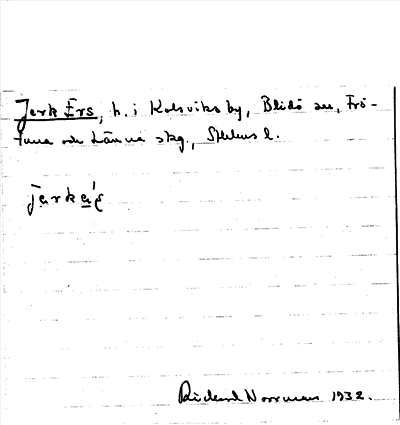 Jerk Ers, h. i Kolsviks by, Blidö sn, Frö-
tuna och Länna skg., Sthlms l.
Rickard Norrman 1932.